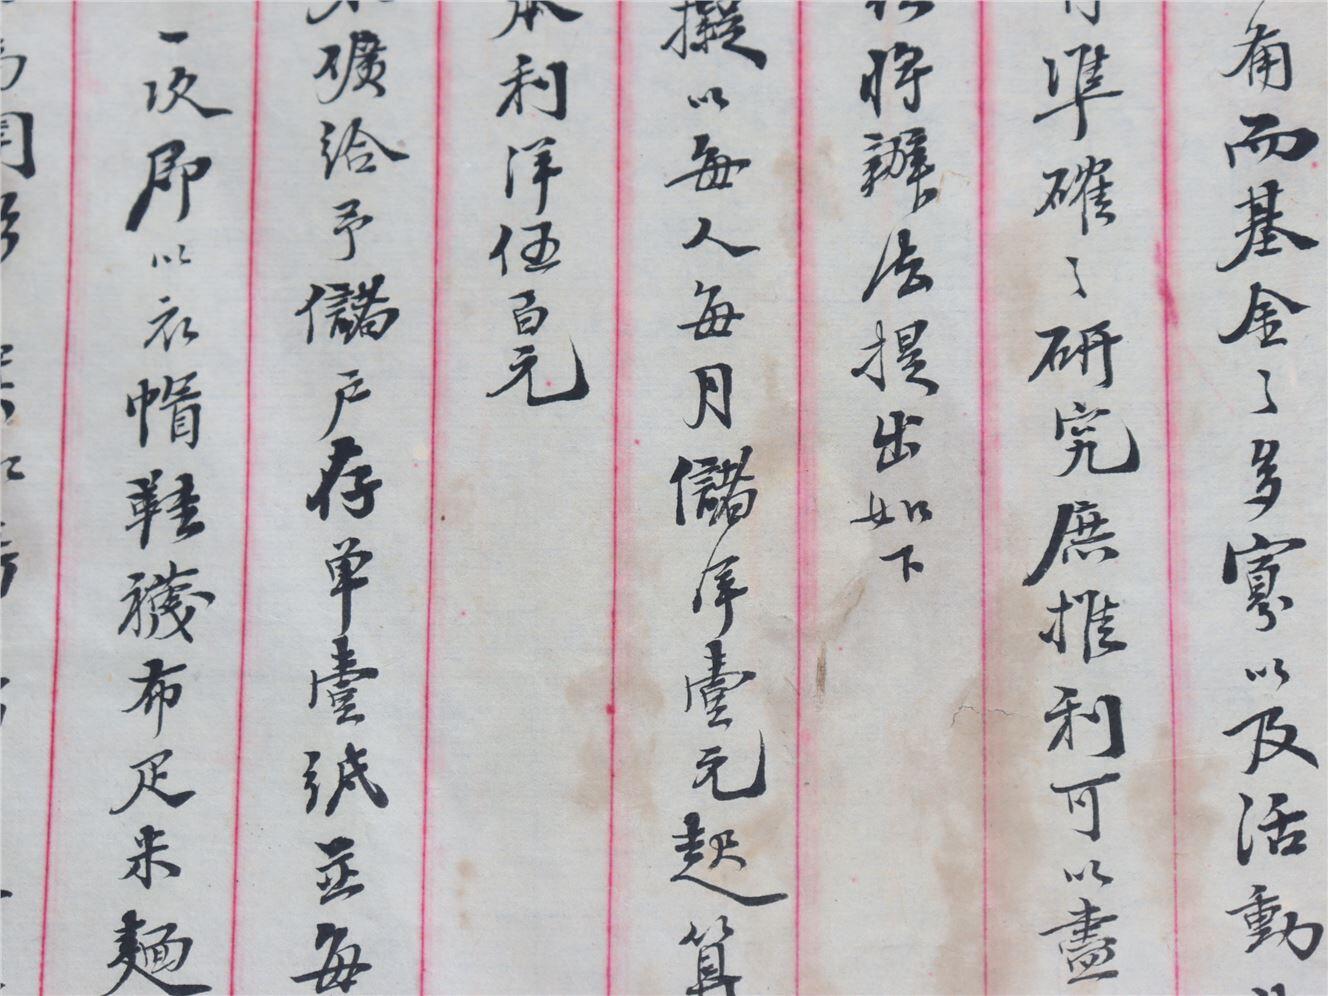 而基金之多寡以及活動
準確之研究庶推利可以盡
將辦法提出如下
擬以每人每月儲洋壹元起算
本利洋伍百元
礦給予儲户存单壹紙並每
一次即以衣帽鞋襪布疋米麵